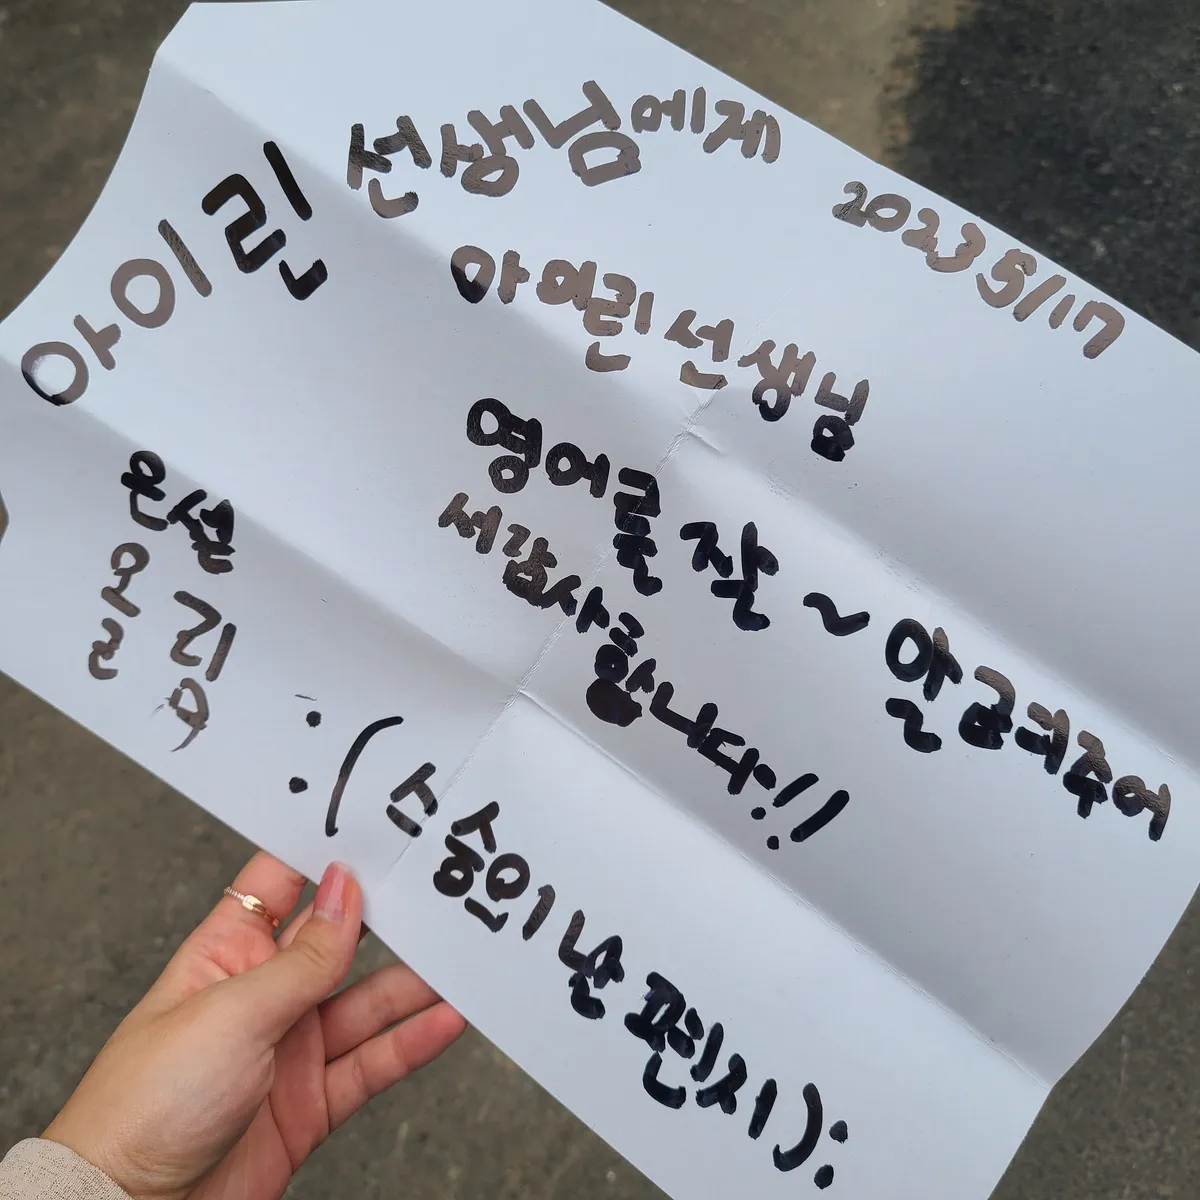 아이린 선생님에게
2023 5/17
아이린 선생님
영어를 잘~ 알려주어
서 감사합니다!!
은선
올림
):
스승의 난 편지 (: